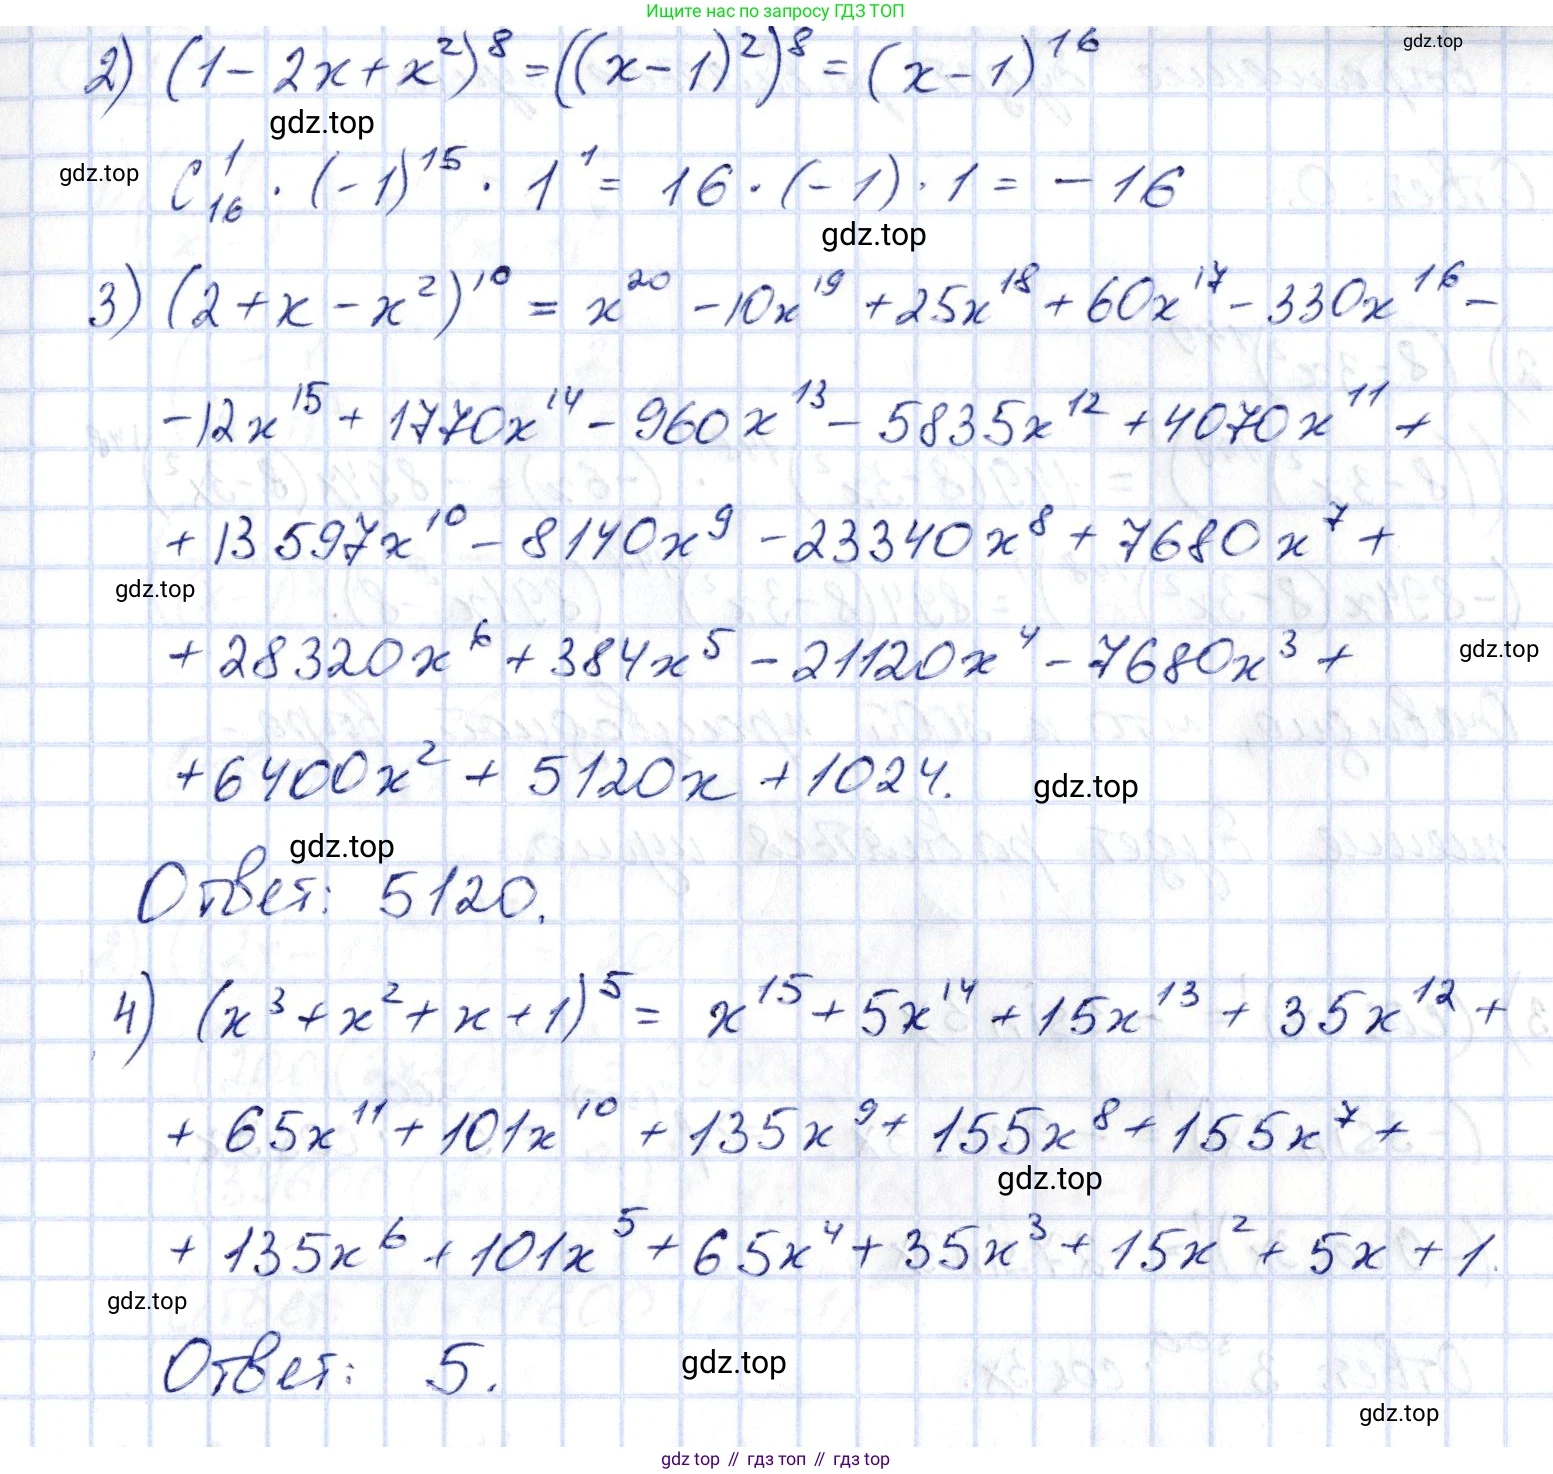 Ищите нас по запросу ГДЗ ТОП
gdz.top
2) (1 - 2x + x²)⁸ = ((x - 1)²)⁸ = (x - 1)¹⁶
gdz.top
gdz.top
C¹₁₆ · (-1)¹⁵ · 1¹ = 16 · (-1) · 1 = -16
gdz.top
3) (2 + x - x²)¹⁰ = x²⁰ - 10x¹⁹ + 25x¹⁸ + 60x¹⁷ - 330x¹⁶ -
- 12x¹⁵ + 1770x¹⁴ - 960x¹³ - 5835x¹² + 4070x¹¹ +
+ 13597x¹⁰ - 8140x⁹ - 23340x⁸ + 7680x⁷ +
gdz.top
+ 28320x⁶ + 384x⁵ - 21120x⁴ - 7680x³ +
gdz.top
+ 6400x² + 5120x + 1024.
gdz.top
gdz.top
Ответ: 5120.
4) (x³ + x² + x + 1)⁵ = x¹⁵ + 5x¹⁴ + 15x¹³ + 35x¹² +
+ 65x¹¹ + 101x¹⁰ + 135x⁹ + 155x⁸ + 155x⁷ +
gdz.top
+ 135x⁶ + 101x⁵ + 65x⁴ + 35x³ + 15x² + 5x + 1.
gdz.top
Ответ: 5.
gdz.top
gdz.top
gdz top // гдз топ // гдз top